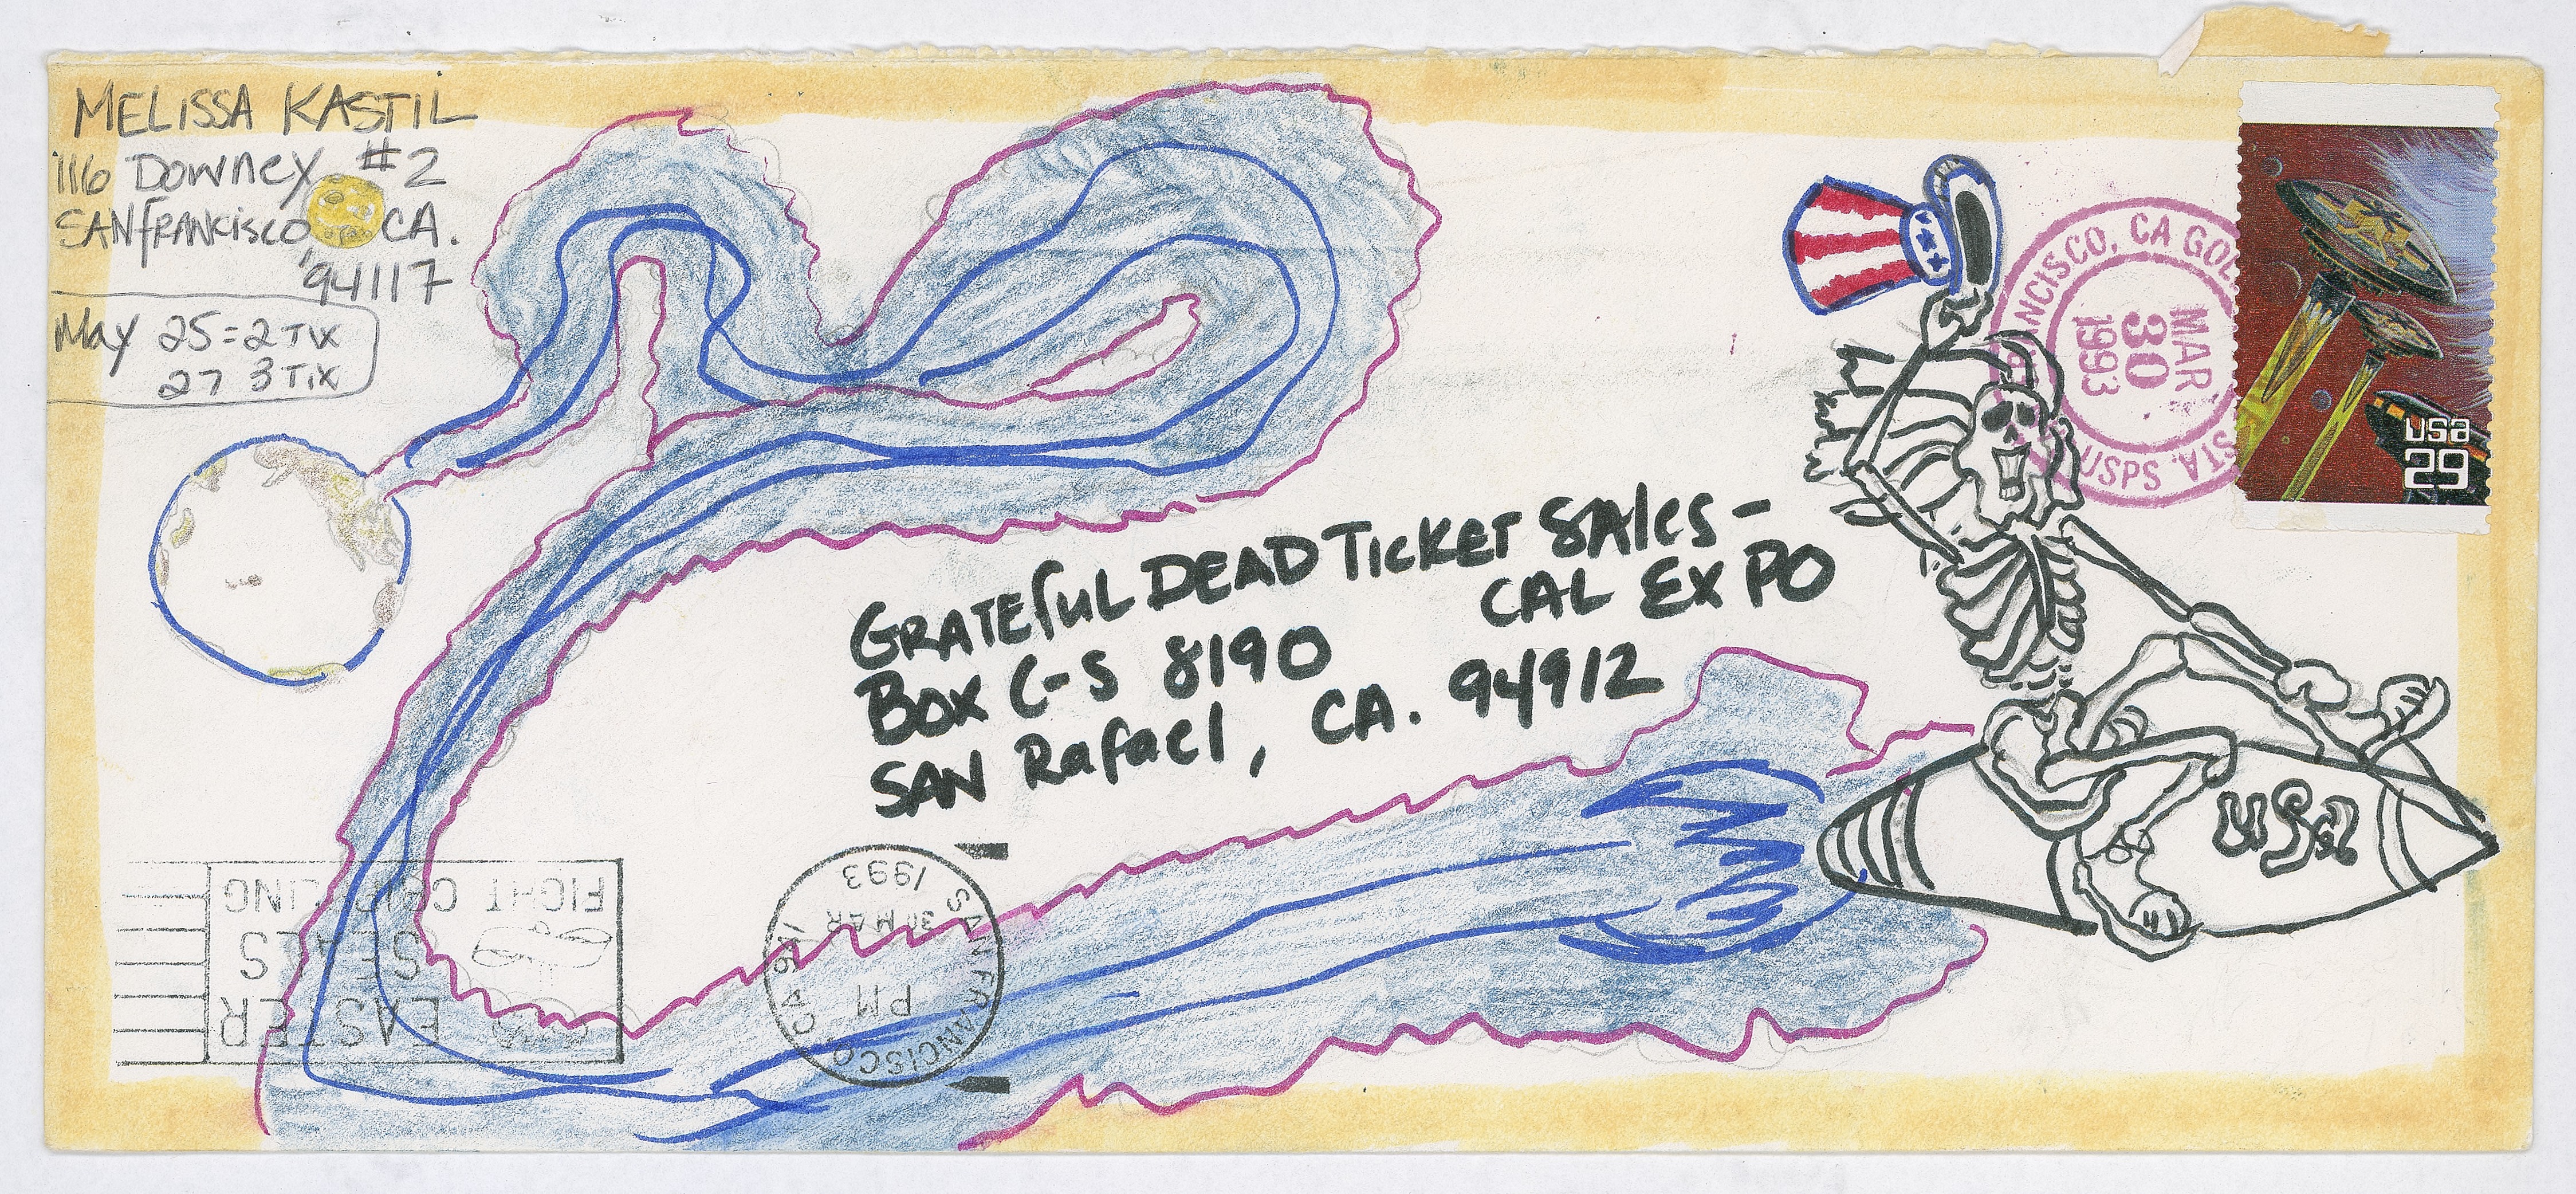 MELISSA KASTIL
1116 Downey #2
SAN FRANCISCO CA.
94117
May 25=2 TIX
27 3 TIX
GRATEFUL DEAD TICKET SALES-
CAL EXPO
BOX C-S 8190
SAN Rafael, CA. 94912
USA
NCISCO, CA GOL
MAR
30
1993
USPS
STA
usa
29
SAN FRANCISCO, CA 941
PM
30 MAR
1993
EASTER
SEALS
FIGHT CRIPPLING